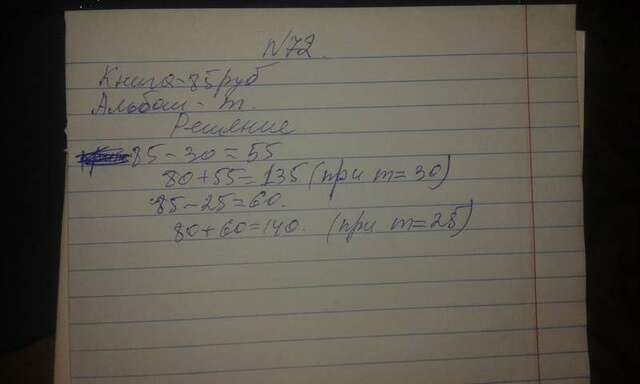 N72.
Книга-85руб
Альбом - m.
Решение
85-30=55
80+55=135 (при m=30)
85-25=60.
80+60=140. (при m=25)